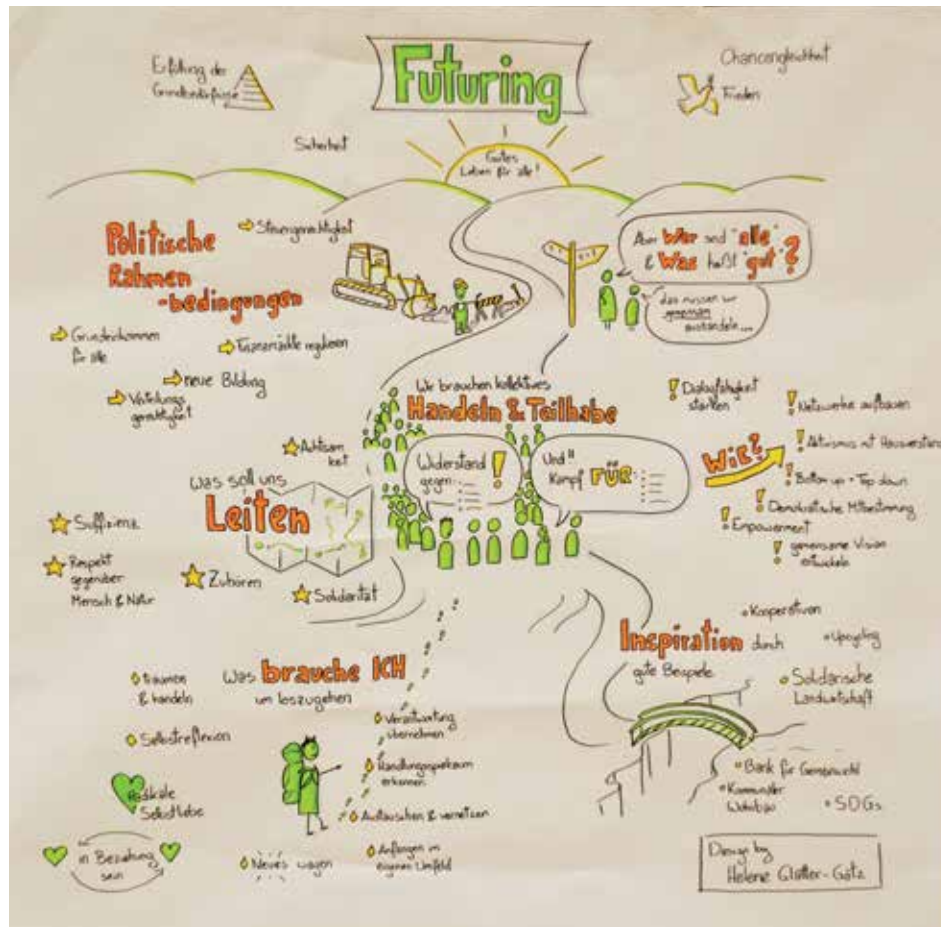 Futuring
Erfüllung der
Grundbedürfnisse
Chancengleichheit
Frieden
Sicherheit
Gutes
Leben für alle!
Politische
Rahmen
-bedingungen
Steuergerechtigkeit
Grundeinkommen
für alle
Finanzmärkte regulieren
neue Bildung
Verteilungs
gerechtigkeit
Aber Wer sind "alle"
& Was heißt "gut"?
das müssen wir
gemeinsam
aushandeln...
Wir brauchen kollektives
Handeln & Teilhabe
Widerstand
gegen...
!
Und
Kampf FÜR
WIE?
Dialogfähigkeit
stärken
Netzwerke aufbauen
Aktivismus mit Hausverstand
Bottom up + Top down
Demokratische Mitbestimmung
Empowerment
gemeinsame Vision
entwickeln
Was soll uns
Leiten
Achtsam
keit
Suffizienz
Respekt
gegenüber
Mensch & Natur
Zuhören
Solidarität
Was brauche ICH
um loszugehen
träumen
& handeln
Selbstreflexion
Radikale
Selbstliebe
in Beziehung
sein
Neues wagen
Verantwortung
übernehmen
Handlungsspielraum
erkennen
Austauschen & vernetzen
Anfangen im
eigenen Umfeld
Inspiration durch
gute Beispiele
Kooperativen
Upcycling
Solidarische
Landwirtschaft
Bank für Gemeinwohl
Kommunaler
Wohnbau
SDGs
Design by
Helene Glatter-Götz